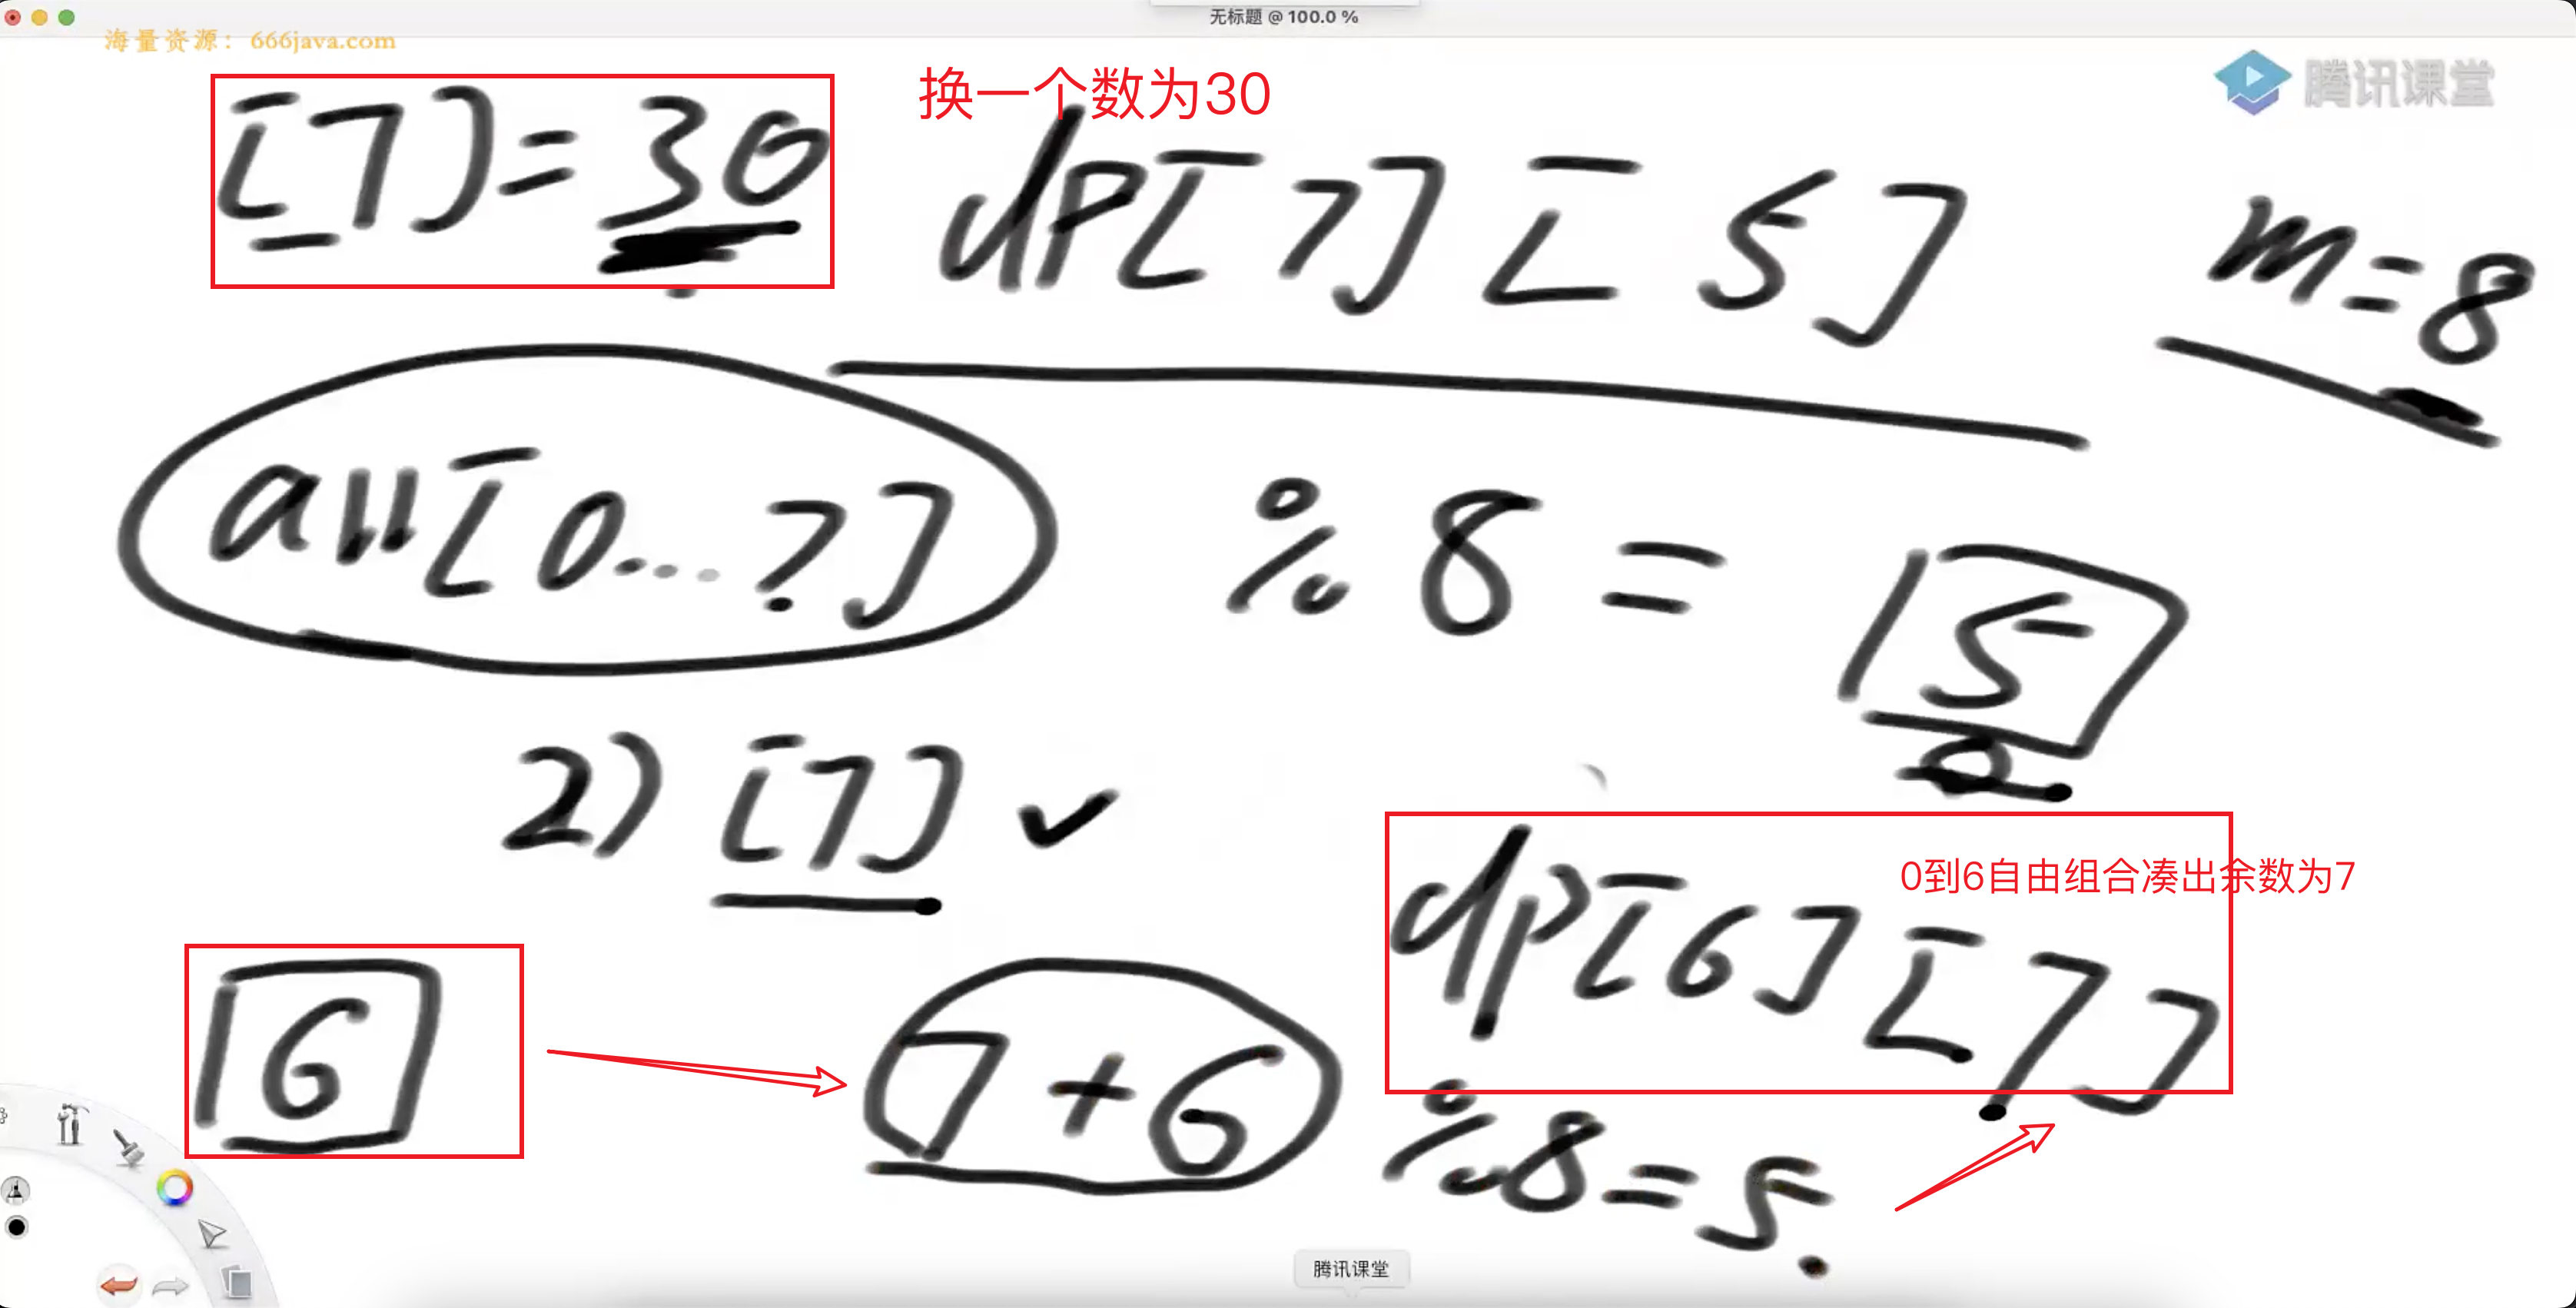 无标题 @ 100.0 %
海量资源：666java.com
腾讯课堂
[7]=30
换一个数为30
dp[7][5]
m=8
all[0...?]
%8=
5
2) [7] ✓
dp[6][7]
0到6自由组合凑出余数为7
6
7+6
%8=5.
腾讯课堂